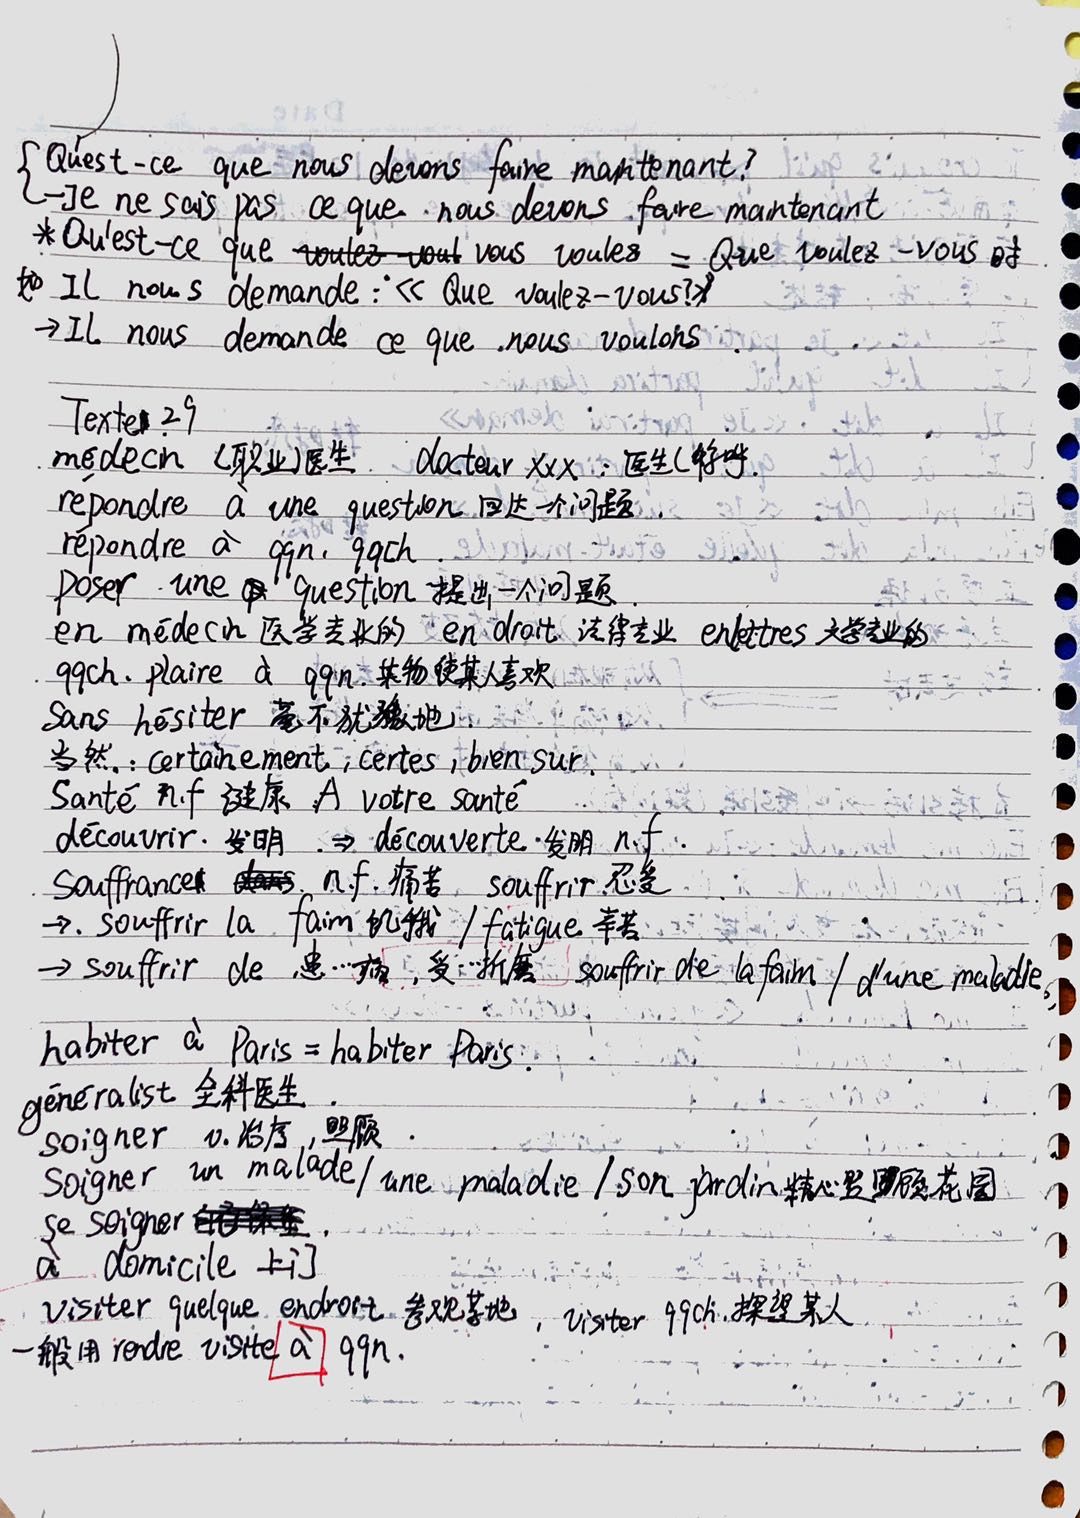 Qu'est-ce que nous devons faire maintenant?
→Je ne sais pas ce que nous devons faire maintenant
*Qu'est-ce que vous voulez = Que voulez-vous 时
如 Il nous demande: «Que voulez-vous?»
→Il nous demande ce que nous voulons.
Texte 29
médecin (职业)医生. docteur xxx: 医生(称呼.
répondre à une question 回达一个问题.
répondre à qqn. qqch.
poser une question 提出一个问题.
en médecin 医学专业的 en droit 法律专业 en lettres 文学专业的
qqch. plaire à qqn. 某物使某人喜欢
sans hésiter 毫不犹豫地.
当然.: certainement, certes, bien sur.
Santé n.f 健康 A votre santé
découvrir. 发明 ⇒ découverte. 发明 n.f.
souffrance n.f. 痛苦 souffrir 忍受
→. souffrir la faim 饥饿 / fatigue 辛苦
→ souffrir de 患…病, 受…折磨 souffrir de la faim / d'une maladie.
habiter à Paris = habiter Paris.
généralist 全科医生.
soigner v. 治疗, 照顾.
soigner un malade / une maladie / son jardin 精心照顾花园
se soigner
à domicile 上门
visiter quelque endroit 参观某地, visiter qqch. 探望某人
一般用 rendre visite à qqn.